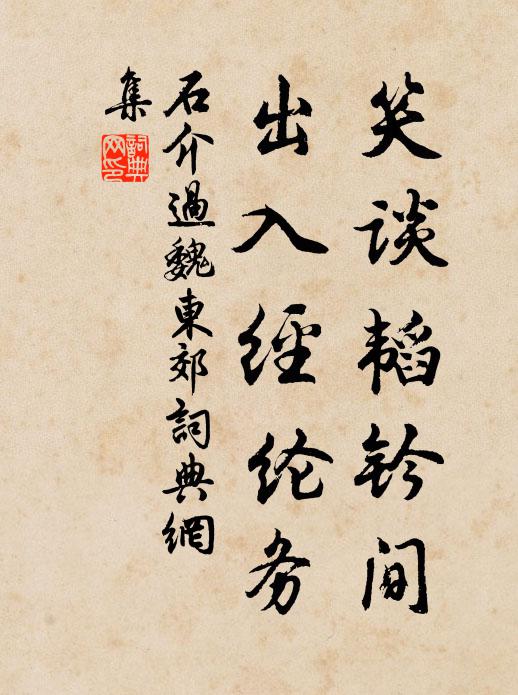 笑谈韬钤间
出入经纶务
石介過魏東郊詞典網
集
詞典網印